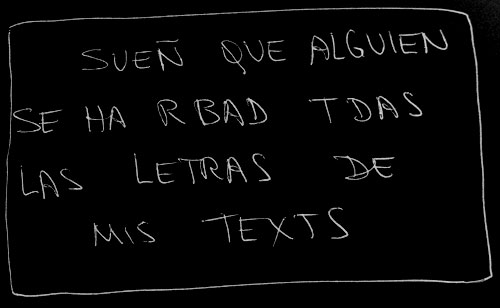 SUEÑ QUE ALGUIEN
SE HA RBAD TDAS
LAS LETRAS DE
MIS TEXTS